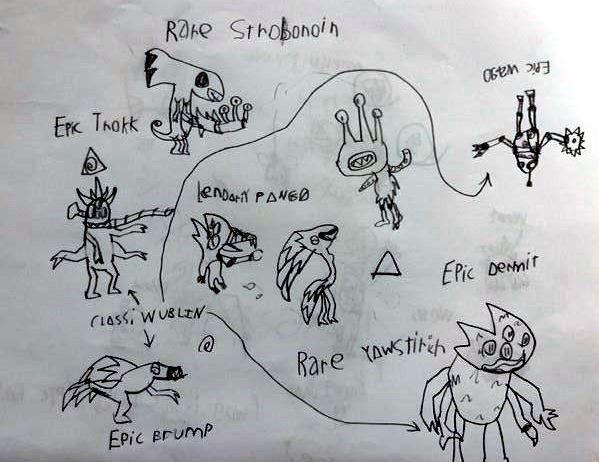 Rare Strobonoin
EPIC WA9O
EPIC TROKK
LENDARY PANGO
EPIC DERMIT
CLASSI WUBLIN
RARE YAWSTIRICH
EPIC BRUMP